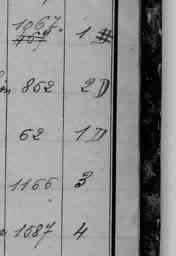 1067. 1 #
852 2 D
62 1 D
1166 3
1587 4